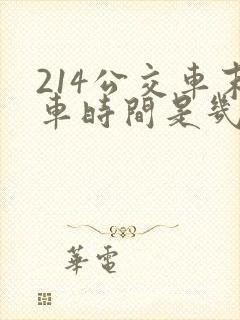 214公交車末
車時間是幾
華電